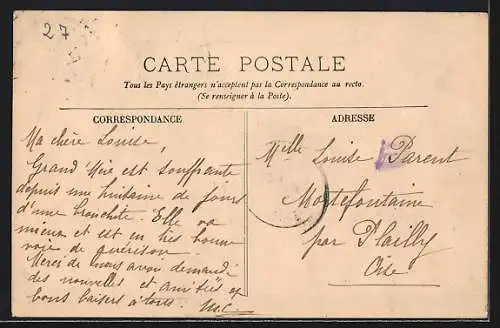 27
CARTE POSTALE
Tous les Pays étrangers n'acceptent pas la Correspondance au recto.
(Se renseigner à la Poste).
CORRESPONDANCE
Ma chère Louise,
Grand' Mère est souffrante
depuis une huitaine de jours
d'une bronchite. Elle va
mieux et est en très bonne
voie de guérison.
Merci de nous avoir demandé
des nouvelles et amitiés et
bons baisers à tous. M.C
ADRESSE
Melle Louise Parent
Mortefontaine
par Plailly
Oise